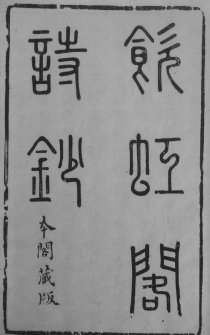 飲虹閣
詩鈔
本閣藏版